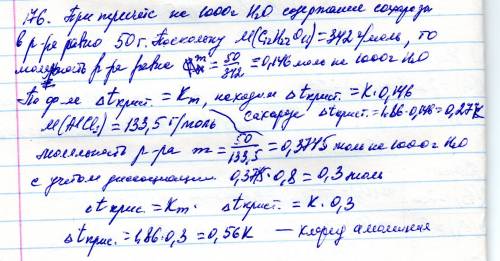 176. При пересчёте на 1000 г H₂O содержание сахарозы
в р-ре равно 50 г. Поскольку M(C₁₂H₂₂O₁₁) = 342 г/моль, то
моляльность р-ра равна m = 50/342 = 0,146 моль на 1000 г H₂O
По ф-ле Δt крист. = Km, находим Δt крист. = K·0,146
сахароза Δt крист. = 1,86·0,146 = 0,27K
M(AlCl₃) = 133,5 г/моль
моляльность р-ра m = 50/133,5 = 0,3745 моль на 1000 г H₂O
с учётом диссоциации 0,3745·0,8 = 0,3 моль
Δt крис. = Km. Δt крист. = K·0,3
Δt крис. = 1,86·0,3 = 0,56K — хлорид алюминия